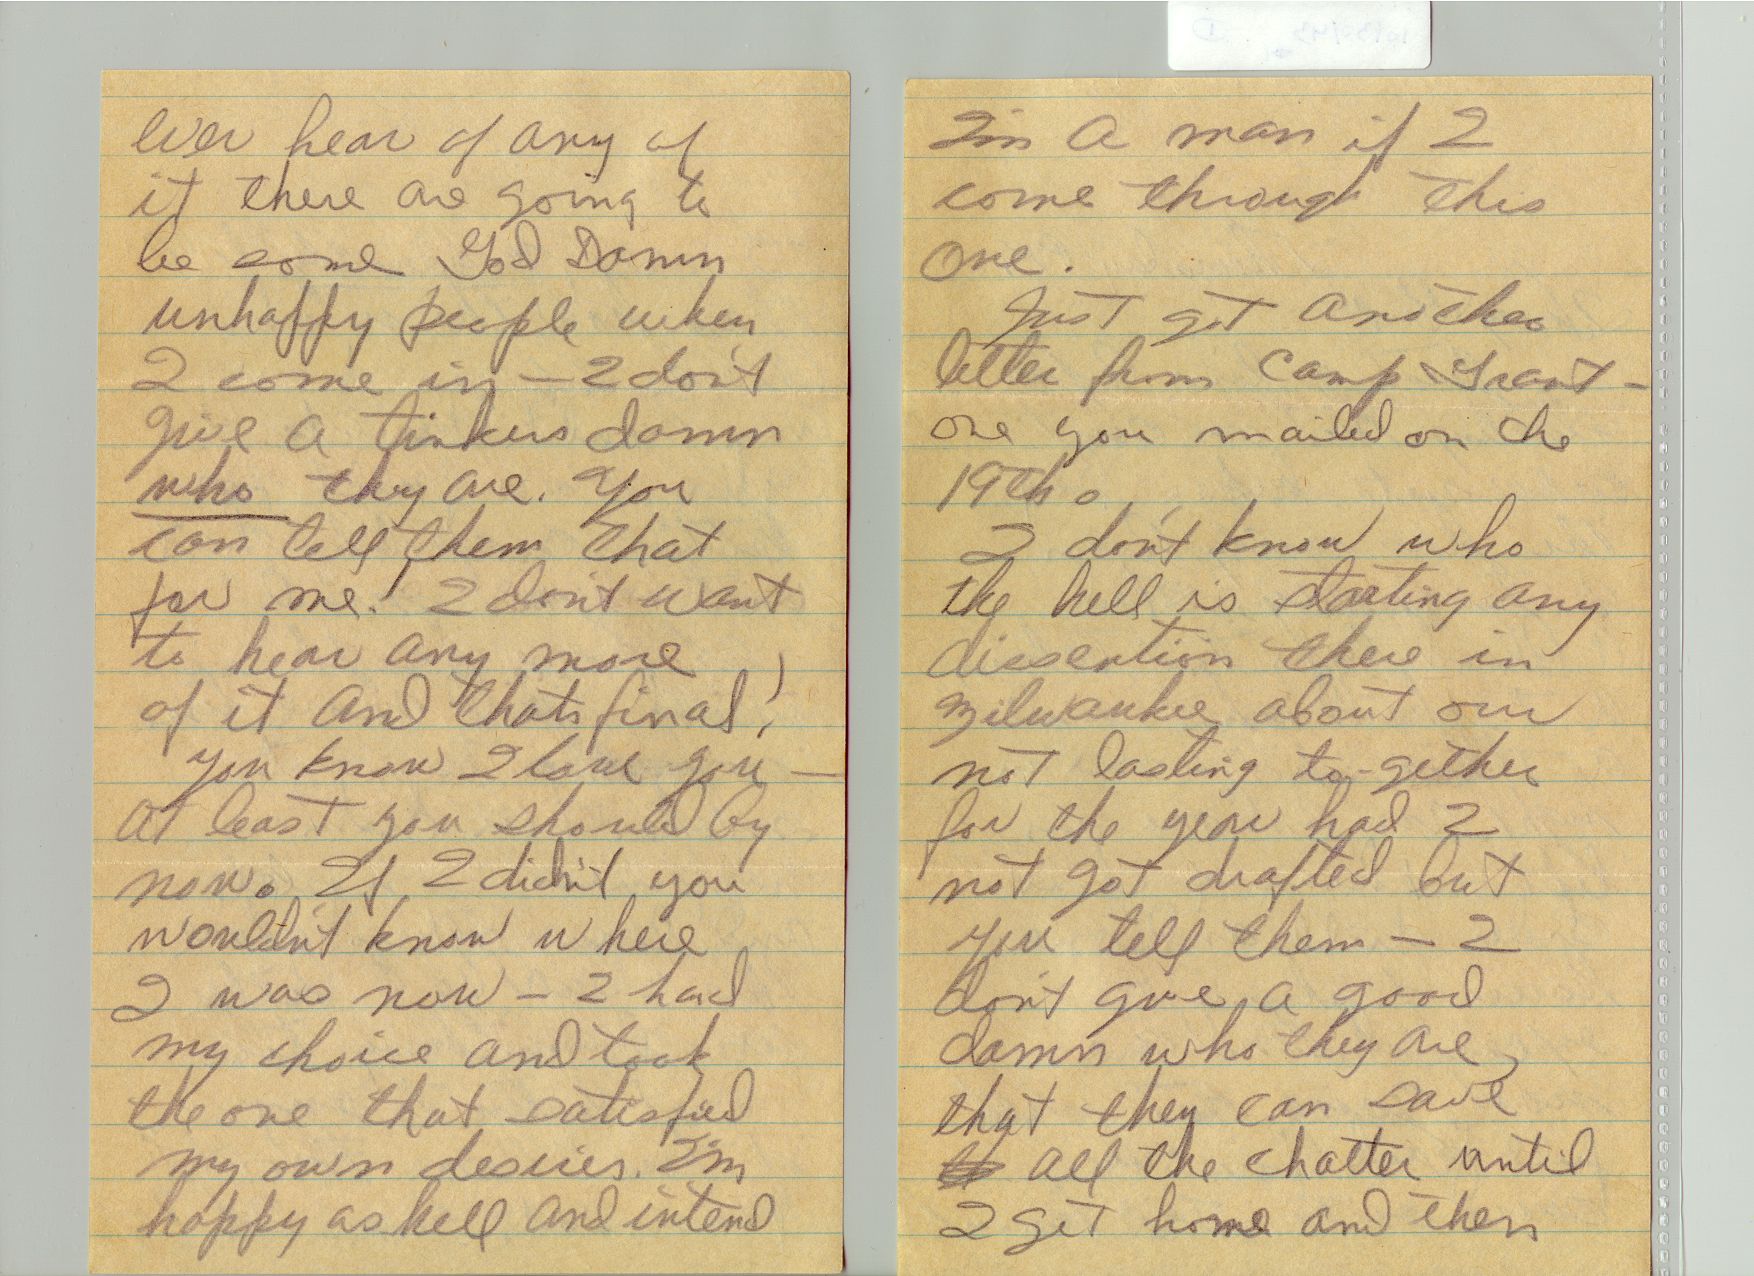 ever hear of any of
it there are going to
be some God Damn
unhappy people when
I come in — I don't
give a tinkers damn
who they are. You
can tell them that
for me! I don't want
to hear any more
of it and thats final!
You know I love you —
at least you should by
now. If I didn't you
wouldn't know where
I was now — I had
my choice and took
the one that satisfied
my own desires. I'm
happy as hell and intend
I'm a man if I
come through this
one.
Just got another
letter from Camp Grant —
one you mailed on the
19th.
I don't know who
the hell is starting any
dissention there in
Milwaukee about our
not lasting to-gether
for the year had I
not got drafted but
you tell them — I
don't give a good
damn who they are,
that they can save
all the chatter until
I get home and then